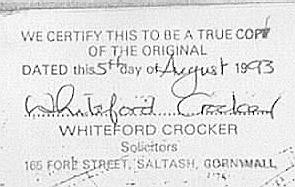 WE CERTIFY THIS TO BE A TRUE COPY
OF THE ORIGINAL
DATED this 5th day of August 1993
Whiteford Crocker
WHITEFORD CROCKER
Solicitors
165 FORE STREET, SALTASH, CORNWALL